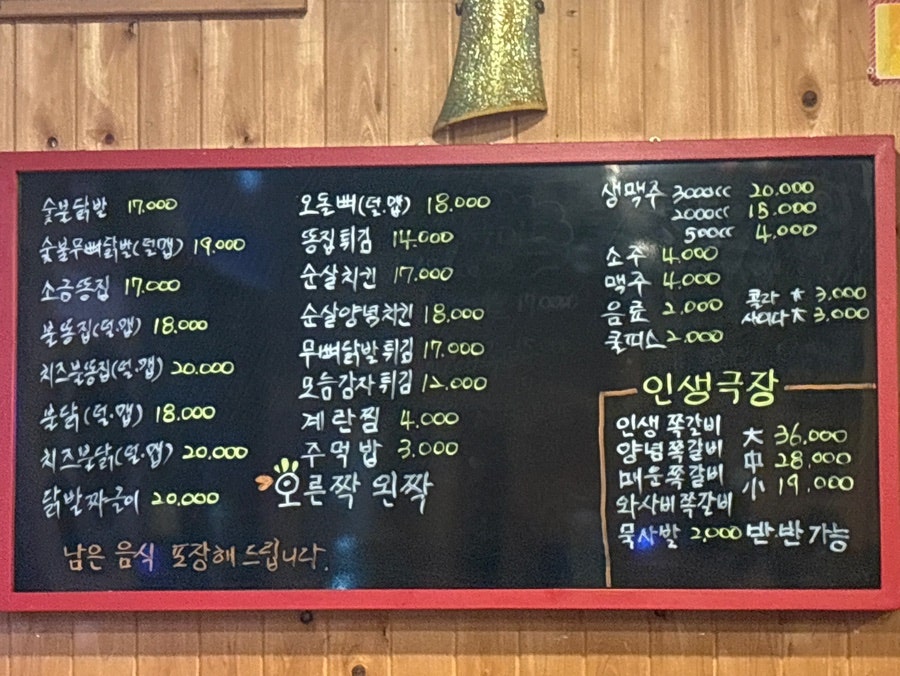 숯불닭발 17.000
숯불무뼈닭발(덜.맵) 19.000
소금똥집 17.000
불똥집(덜.맵) 18.000
치즈불똥집(덜.맵) 20.000
불닭(덜.맵) 18.000
치즈불닭(덜.맵) 20.000
닭발짜글이 20.000
남은 음식 포장해 드립니다.
오돌뼈(덜.맵) 18.000
똥집튀김 14.000
순살치킨 17.000
순살양념치킨 18.000
무뼈닭발튀김 17.000
모듬감자튀김 12.000
계란찜 4.000
주먹밥 3.000
오른짝 왼짝
생맥주 3000cc 20.000
2000cc 15.000
500cc 4.000
소주 4.000
맥주 4.000
음료 2.000
쿨피스 2.000
콜라 大 3,000
사이다 大 3,000
인생극장
인생쪽갈비
양념쪽갈비
매운쪽갈비
와사비쪽갈비
大 36,000
中 28,000
小 19,000
묵사발 2,000 반.반 가능